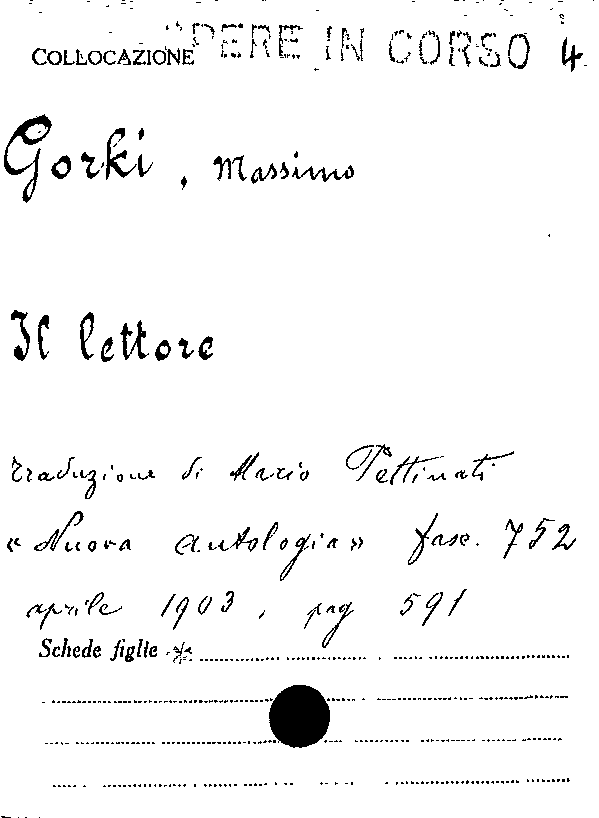 COLLOCAZIONE OPERE IN CORSO 4
Gorki, Massimo
Il lettore
traduzione di Mario Pettinati
«Nuova Antologia» fasc. 752
aprile 1903, pag 591
Schede figlie *